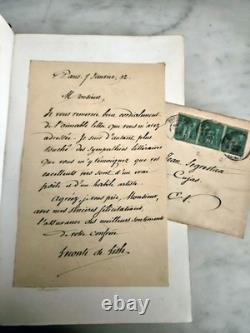 Paris, 9 Janvier, 82.
Monsieur,
Je vous remercie bien cordialement
de l'aimable lettre que vous m'avez
adressée. Je suis d'autant plus
touché des sympathies littéraires
que vous m'y témoignez que vos
excellents vers sont d'un vrai
poëte et d'un habile artiste.
Agréez, je vous prie, Monsieur,
avec mes sincères félicitations,
l'assurance des meilleurs sentiments
de votre confrère
Leconte de Lisle.
Jean
Cujas.